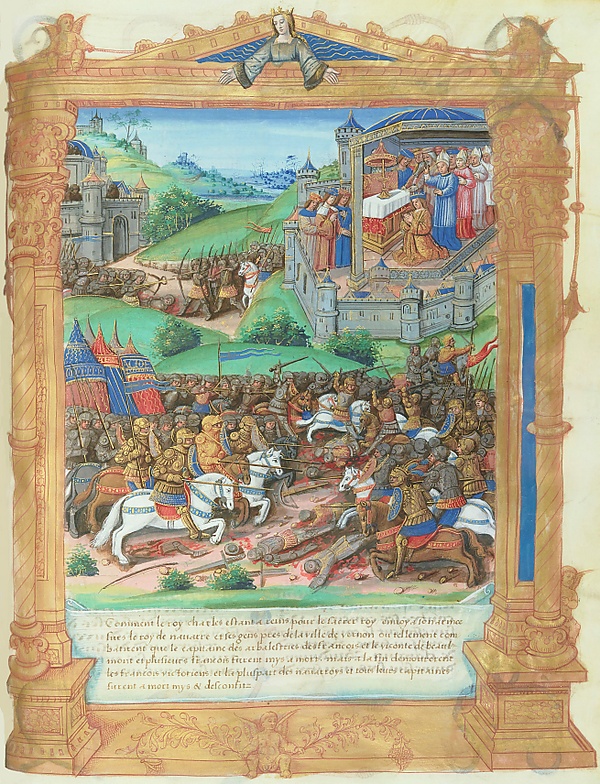 Comment le roy charles estant a reins pour le sacret roy enuoya so armee
sus le roy de nauarre et ses gens pres de la ville de vernon ou tellement com
batirent que le capitaine des arbalestries des francois et le viconte de beaul
mont et plusieurs francois furent mys a mort mais a la fin demourerent
les francois victorieux et la pluspart des nauarroys et tous leurs capitaines
furent a mort mys & desconfitz